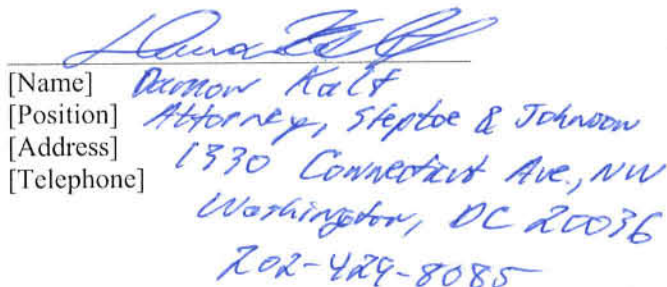 [Name] Damon Kalt
[Position] Attorney, Steptoe & Johnson
[Address] 1330 Connecticut Ave., NW
[Telephone]
Washington, DC 20036
202-429-8085